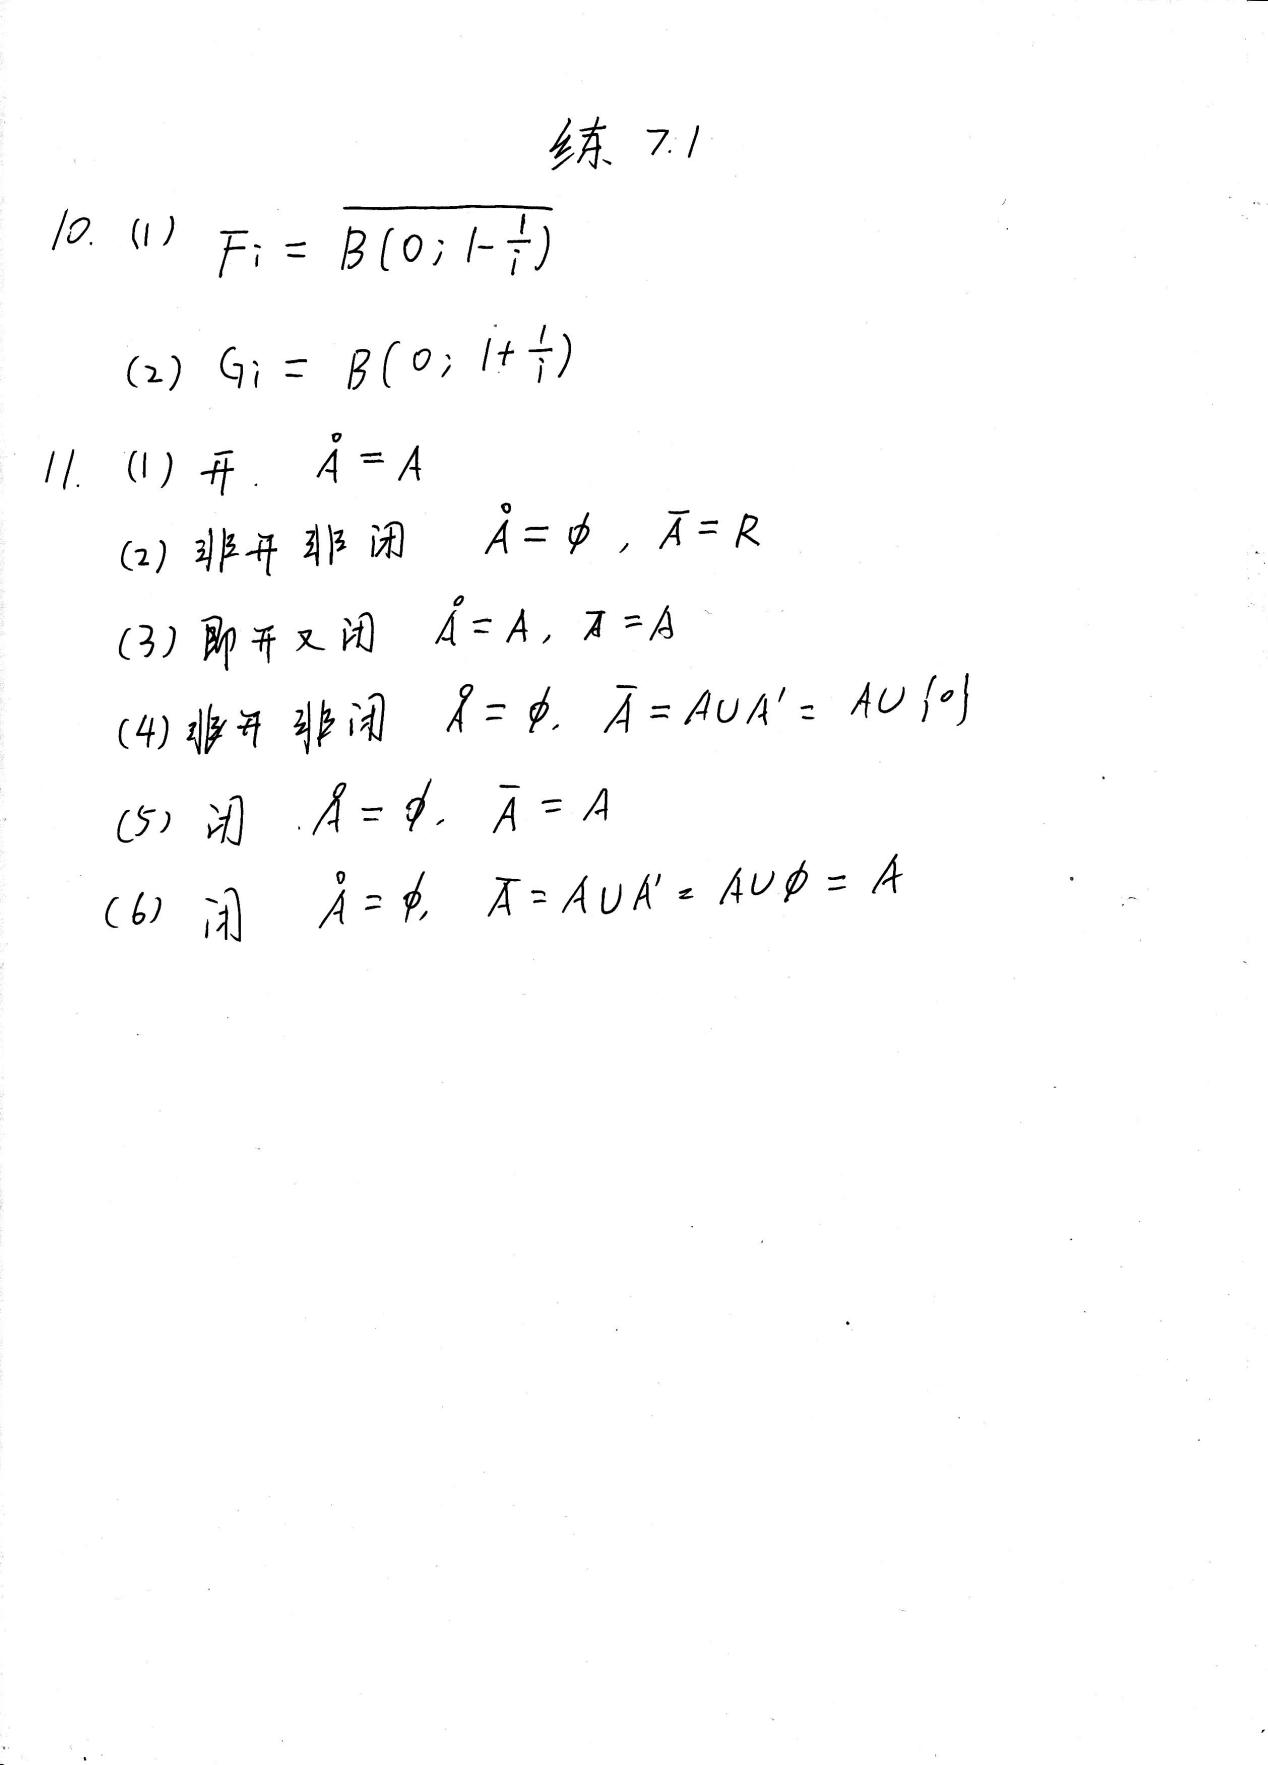 练 7.1
10. (1) Fi = \overline{B(0; 1-\frac{1}{i})}
(2) Gi = B(0; 1+\frac{1}{i})
11. (1) 开. Å = A
(2) 非开非闭 Å = ϕ, Ā = R
(3) 即开又闭 Å = A, Ā = A
(4) 非开非闭 Å = ϕ. Ā = A∪A' = A∪{0}
(5) 闭 Å = ϕ. Ā = A
(6) 闭 Å = ϕ, Ā = A∪A' = A∪ϕ = A